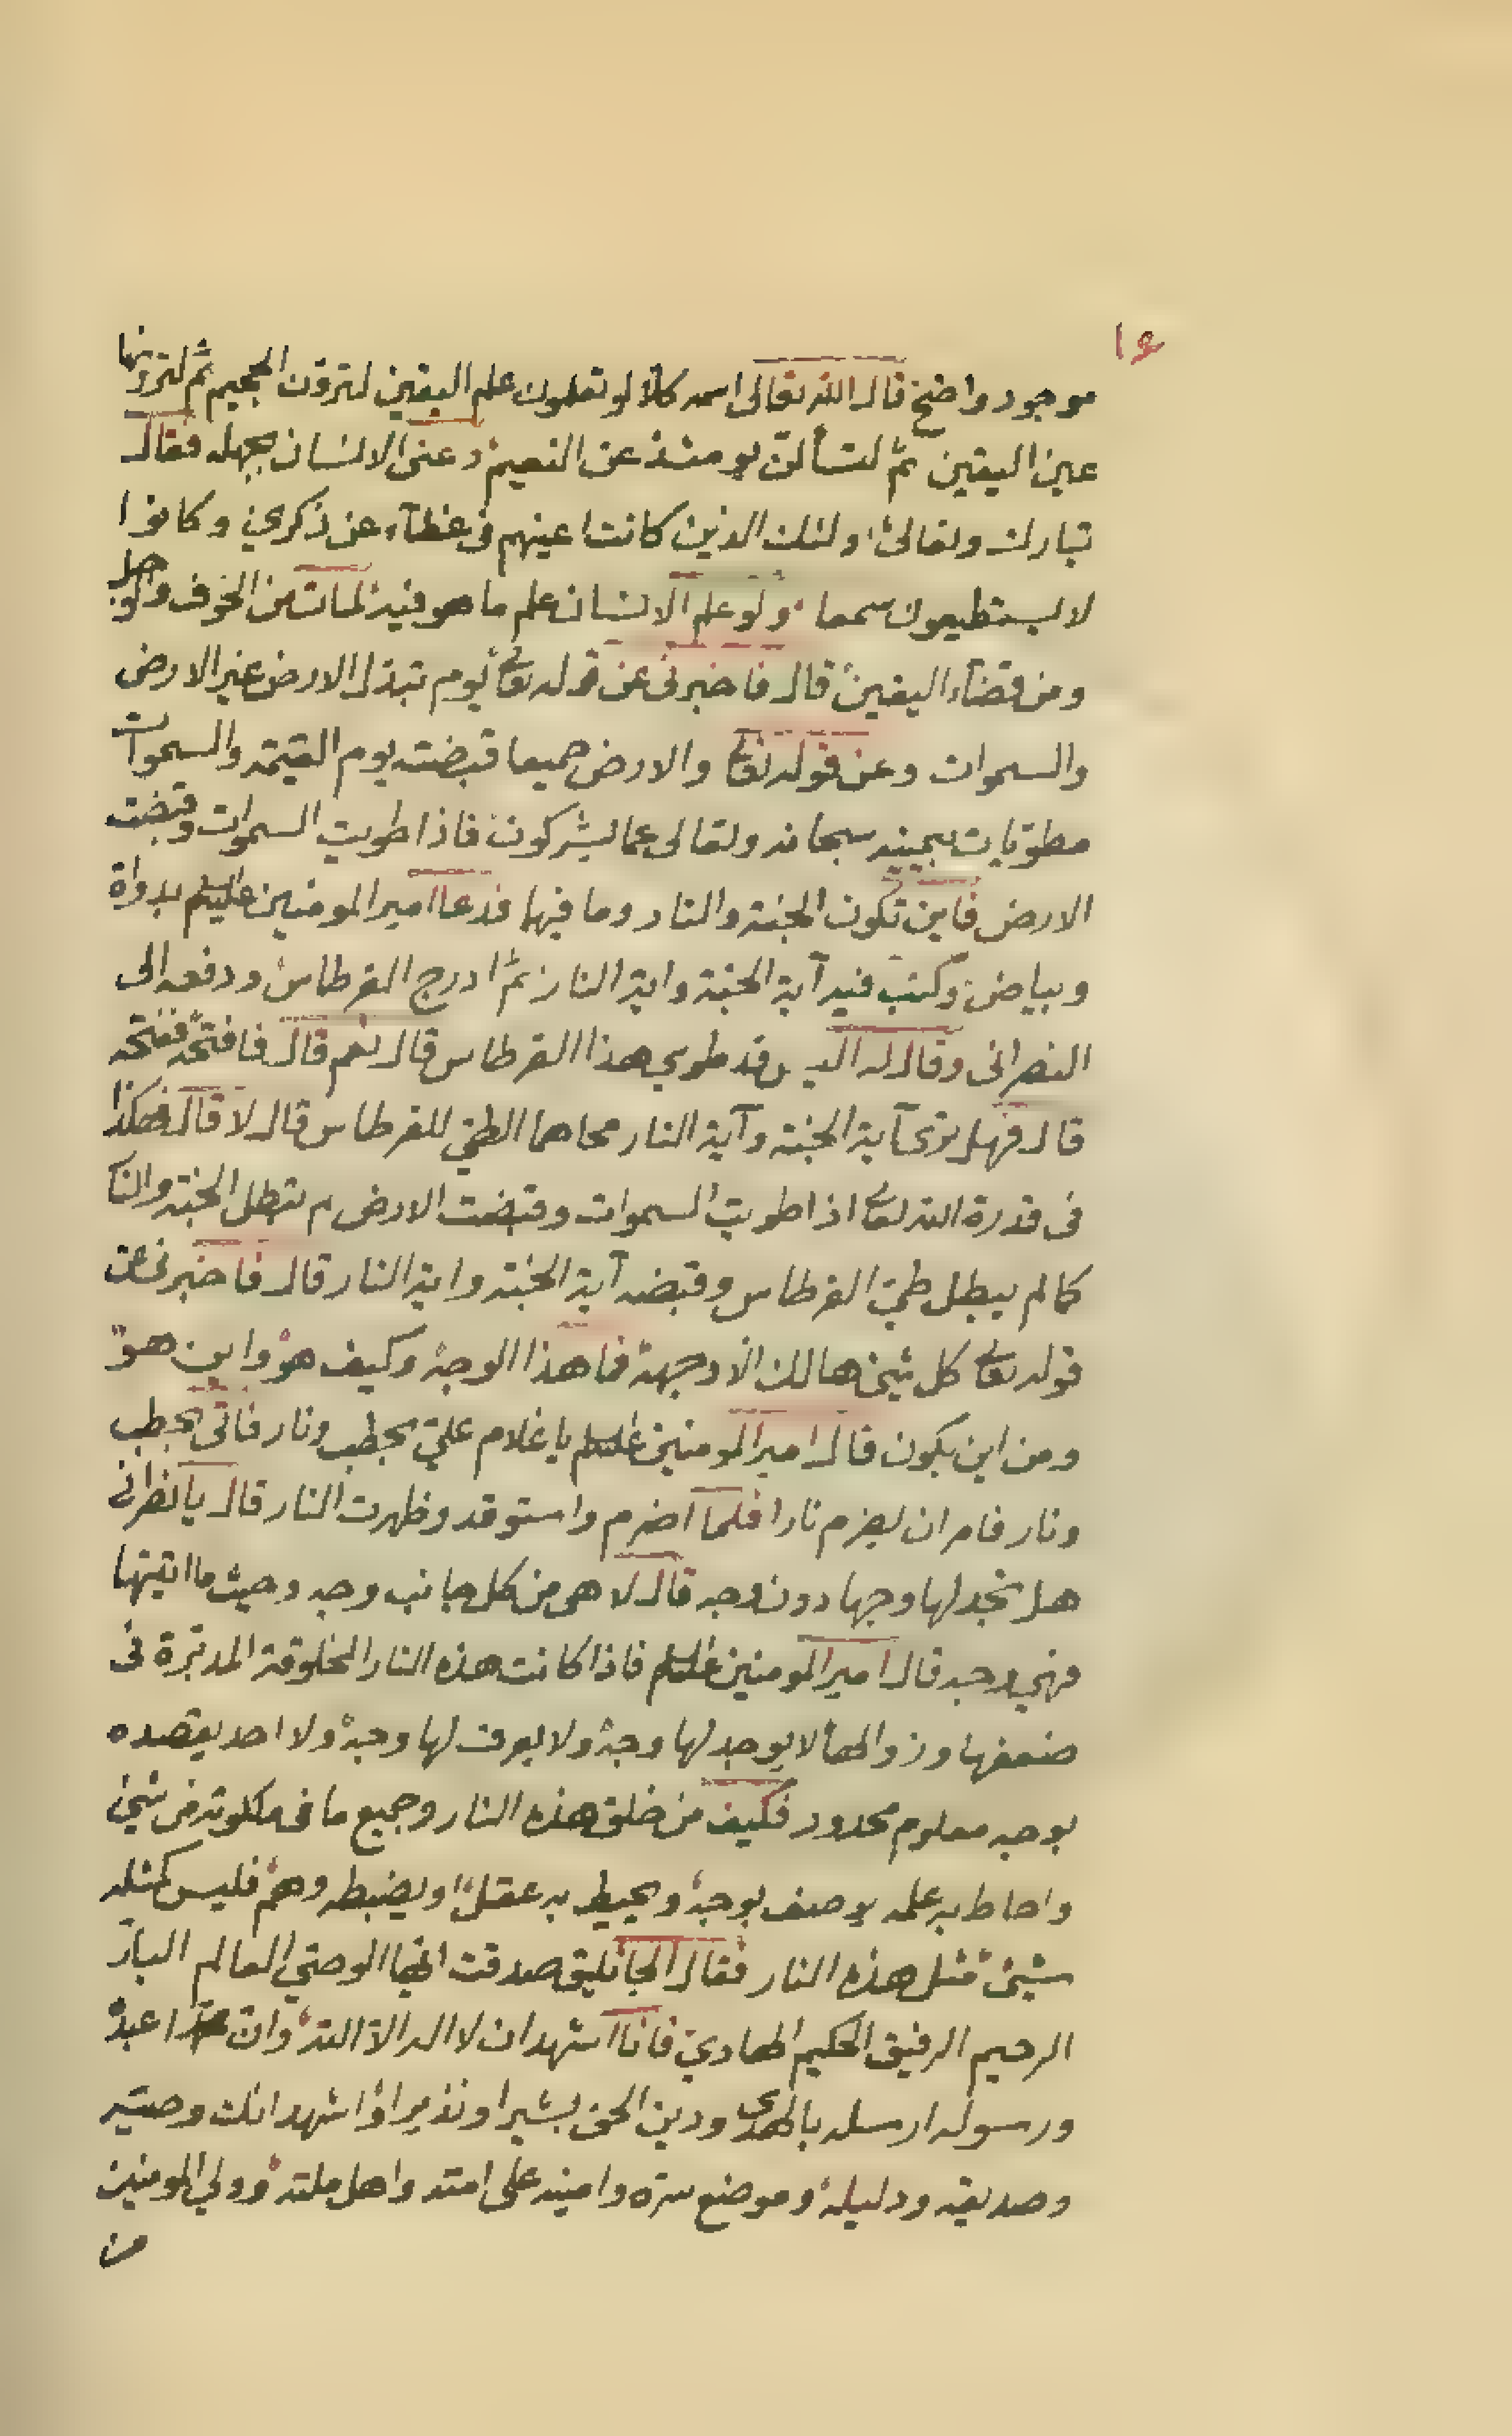 ١٤
موجود واضح قال الله تعالى اسمه كلا لو تعلمون علم اليقين لترون الجحيم ثم لترونها
عين اليقين ثم لتسألن يومئذ عن النعيم وعنى الانسان بجهله فقال
تبارك وتعالى اولئك الذين كانت اعينهم فى غطآء عن ذكرى وكانوا
لا يستطيعون سمعا ولو علم الانسان علم ما هو فيه لمات من الخوف والوجل
ومن قضآء اليقين قال فاخبرنى عن قوله تعالى يوم تبدل الارض غير الارض
والسموات وعن قوله تعالى والارض جميعا قبضته يوم القيمة والسموات
مطويات بيمينه سبحانه وتعالى عما يشركون فاذا طويت السموات وقبضت
الارض فاين تكون الجنة والنار وما فيهما فدعا امير المومنين عليه السلم بدواة
وبياض وكتب فيه آية الجنة واية النار ثم ادرج القرطاس ودفعه الى
النصرانى وقال له اليس قد طوى هذا القرطاس قال نعم قال فافتحه ففتحه
قال فهل ترى آية الجنة وآية النار محاهما الطى للقرطاس قال لا قال فهكذا
فى قدرة الله تعالى اذا طويت السموات وقبضت الارض لم تبطل الجنة والنار
كما لم يبطل طى القرطاس وقبضه آية الجنة واية النار قال فاخبرنى عن
قوله تعالى كل شئ هالك الا وجهه فما هذا الوجه وكيف هو واين هو
ومن اين يكون قال امير المومنين عليه السلم يا غلام على بحطب ونار فاتى بحطب
ونار فامر ان يضرم نارا فلما اضرم واستوقد وظهرت النار قال يا نصرانى
هل تجد لها وجها دون وجه قال لا هى من كل جانب وجه وحيث ما اتيتها
فهى وجه قال امير المومنين عليه السلم فاذا كانت هذه النار المخلوقة المدبرة فى
ضعفها وزوالها لا يوجد لها وجه ولا يعرف لها وجه ولا احد يقصده
بوجه معلوم محدود فكيف من خلق هذه النار وجميع ما فى ملكوته من شئ
واحاط به علمه يوصف بوجه ويحيط به عقل او يضبطه وهم فليس كمثله
شئ مثل هذه النار فقال الجاثليق صدقت ايها الوصى العالم البار
الرحيم الرفيق الحكيم الهادى فانا اشهد ان لا اله الا الله وان محمدا عبده
ورسوله ارسله بالهدى ودين الحق بشيرا ونذيرا واشهد انك وصيه
وصديقه ودليله وموضع سره وامينه على امته واهل ملته وولي المومنين
من